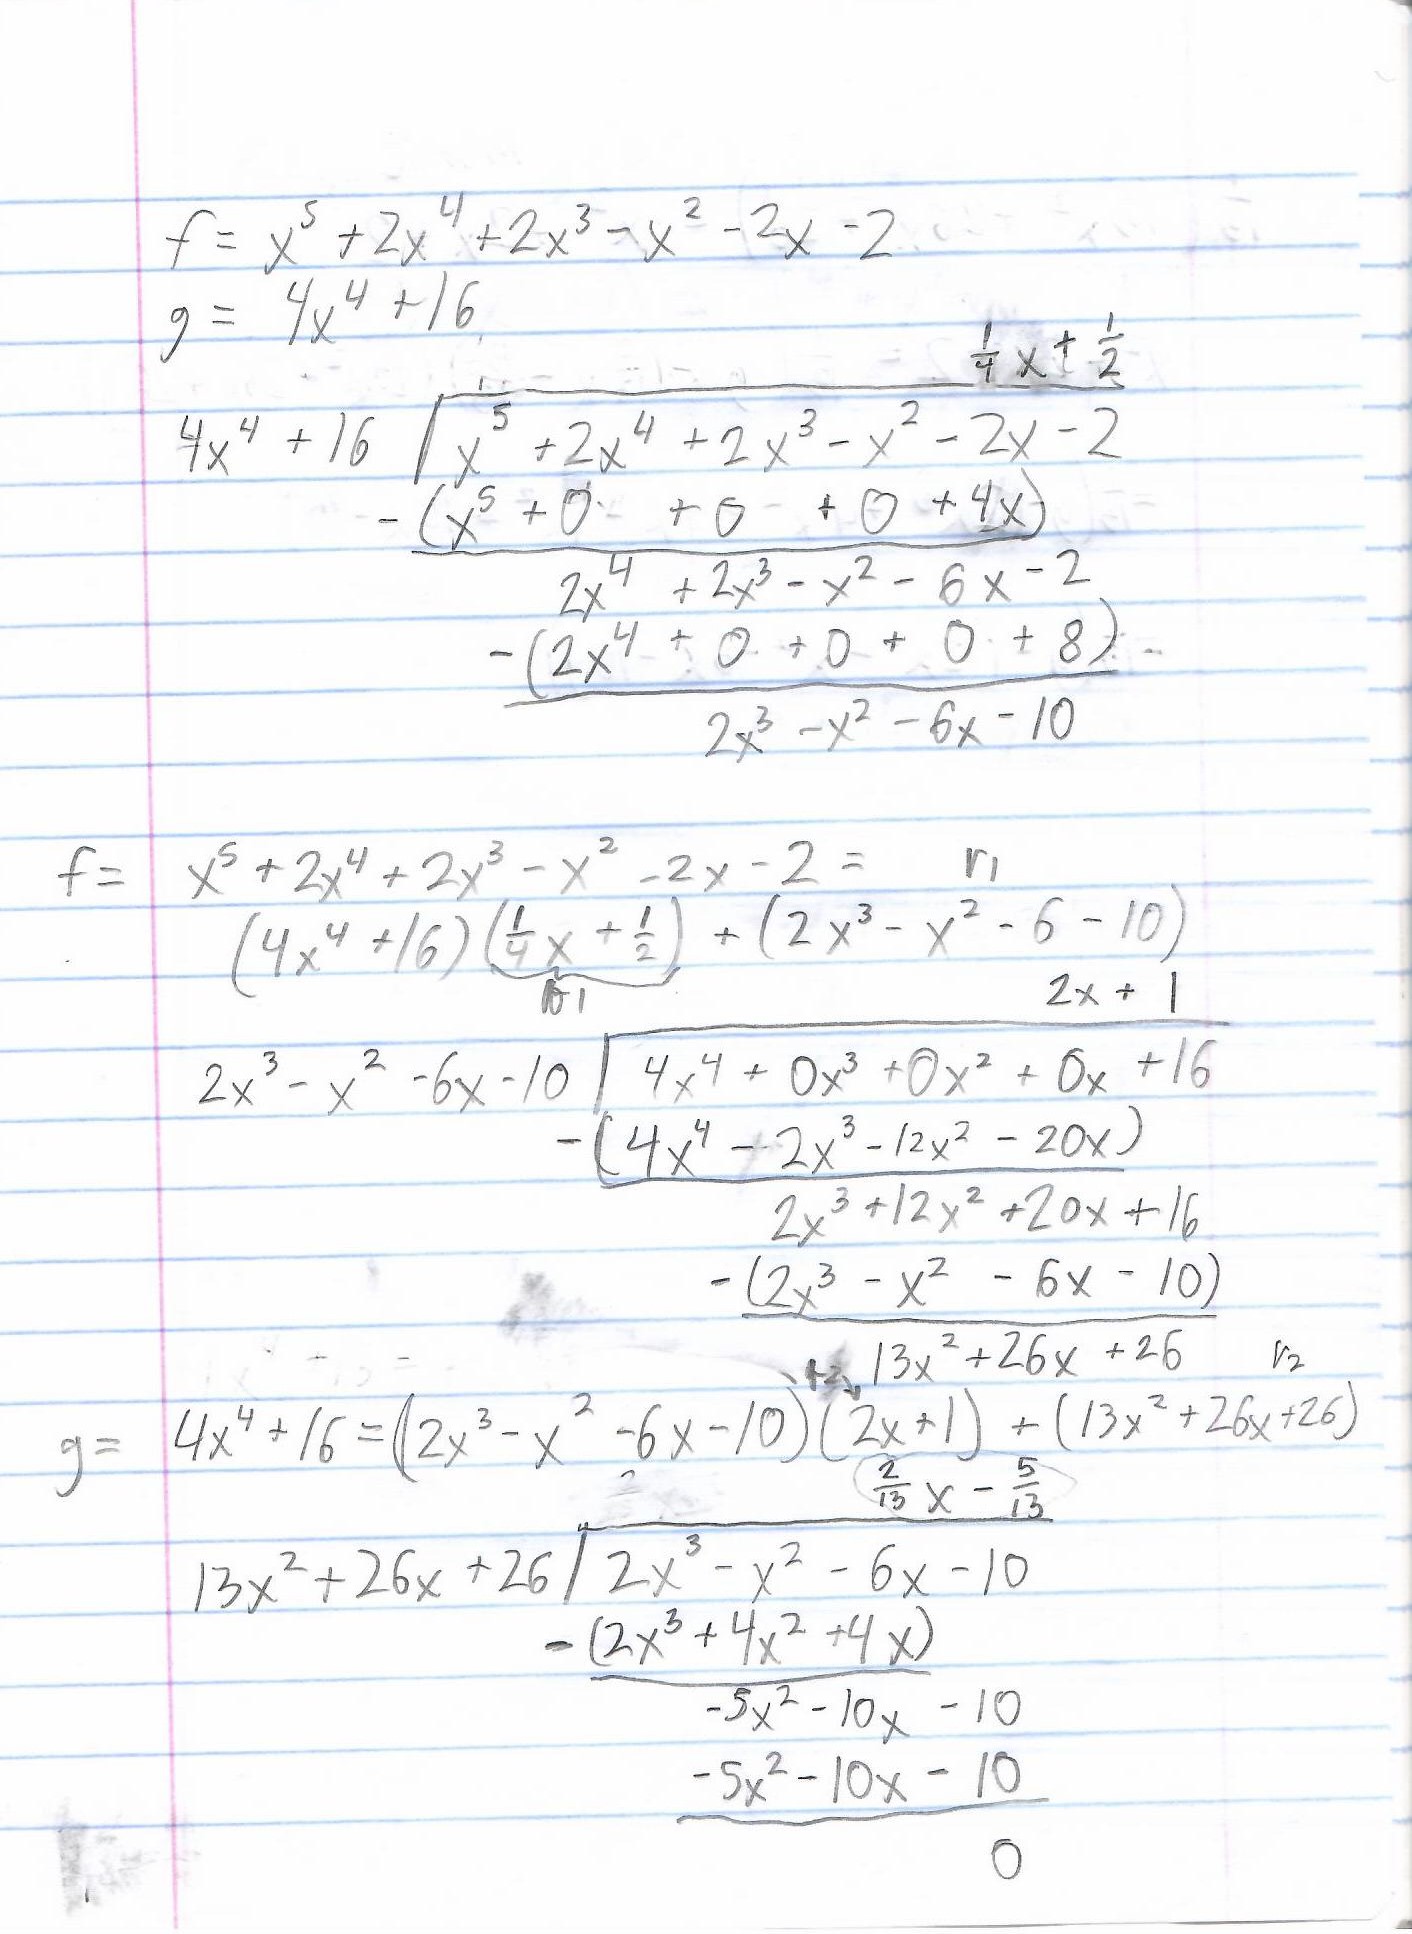 f = x⁵ + 2x⁴ + 2x³ - x² - 2x - 2
g = 4x⁴ + 16
1/4 x + 1/2
4x⁴ + 16 | x⁵ + 2x⁴ + 2x³ - x² - 2x - 2
- (x⁵ + 0 + 0 + 0 + 4x)
2x⁴ + 2x³ - x² - 6x - 2
- (2x⁴ + 0 + 0 + 0 + 8)
2x³ - x² - 6x - 10
f = x⁵ + 2x⁴ + 2x³ - x² - 2x - 2 = r₁
(4x⁴ + 16)(1/4 x + 1/2) + (2x³ - x² - 6 - 10)
2x + 1
2x³ - x² - 6x - 10 | 4x⁴ + 0x³ + 0x² + 0x + 16
- (4x⁴ - 2x³ - 12x² - 20x)
2x³ + 12x² + 20x + 16
- (2x³ - x² - 6x - 10)
13x² + 26x + 26 r₂
g = 4x⁴ + 16 = (2x³ - x² - 6x - 10)(2x + 1) + (13x² + 26x + 26)
2/13 x - 5/13
13x² + 26x + 26 | 2x³ - x² - 6x - 10
- (2x³ + 4x² + 4x)
-5x² - 10x - 10
-5x² - 10x - 10
0